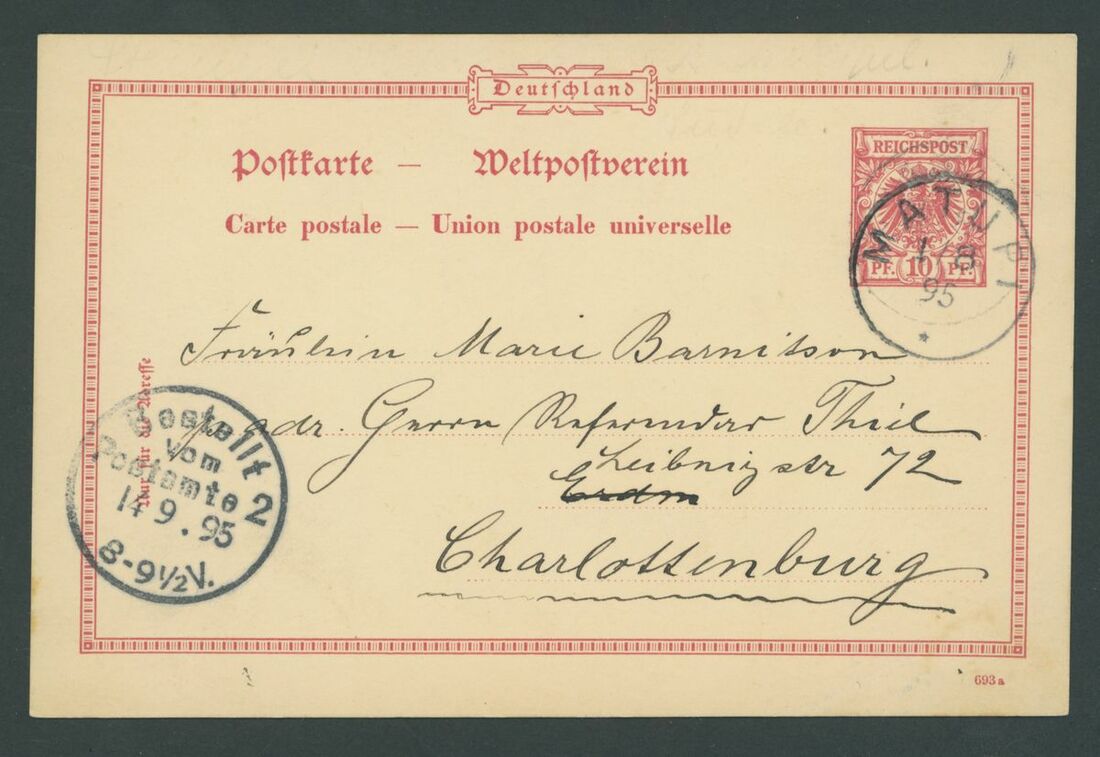 Deutschland
Postkarte — Weltpostverein
Carte postale — Union postale universelle
REICHSPOST
PF. 10 PF.
MATUPI
1/8
95
*
Fräulein Marie Barnitson
adr. Herrn Referendar Thiel
Leibnizstr 72
Erdm
Charlottenburg
Nur für die Adresse
Bestellt
vom
Postamte 2
14 9. 95
8-9½V.
693a